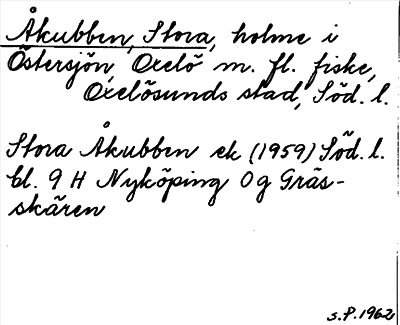 Åkubben, Stora, holme i
Östersjön, Oxelö m. fl. fiske,
Oxelösunds stad, Söd. l.
Stora Åkubben ek (1959) Söd. l.
bl. 9 H Nyköping 0g Gräs-
skären
S.P. 1962